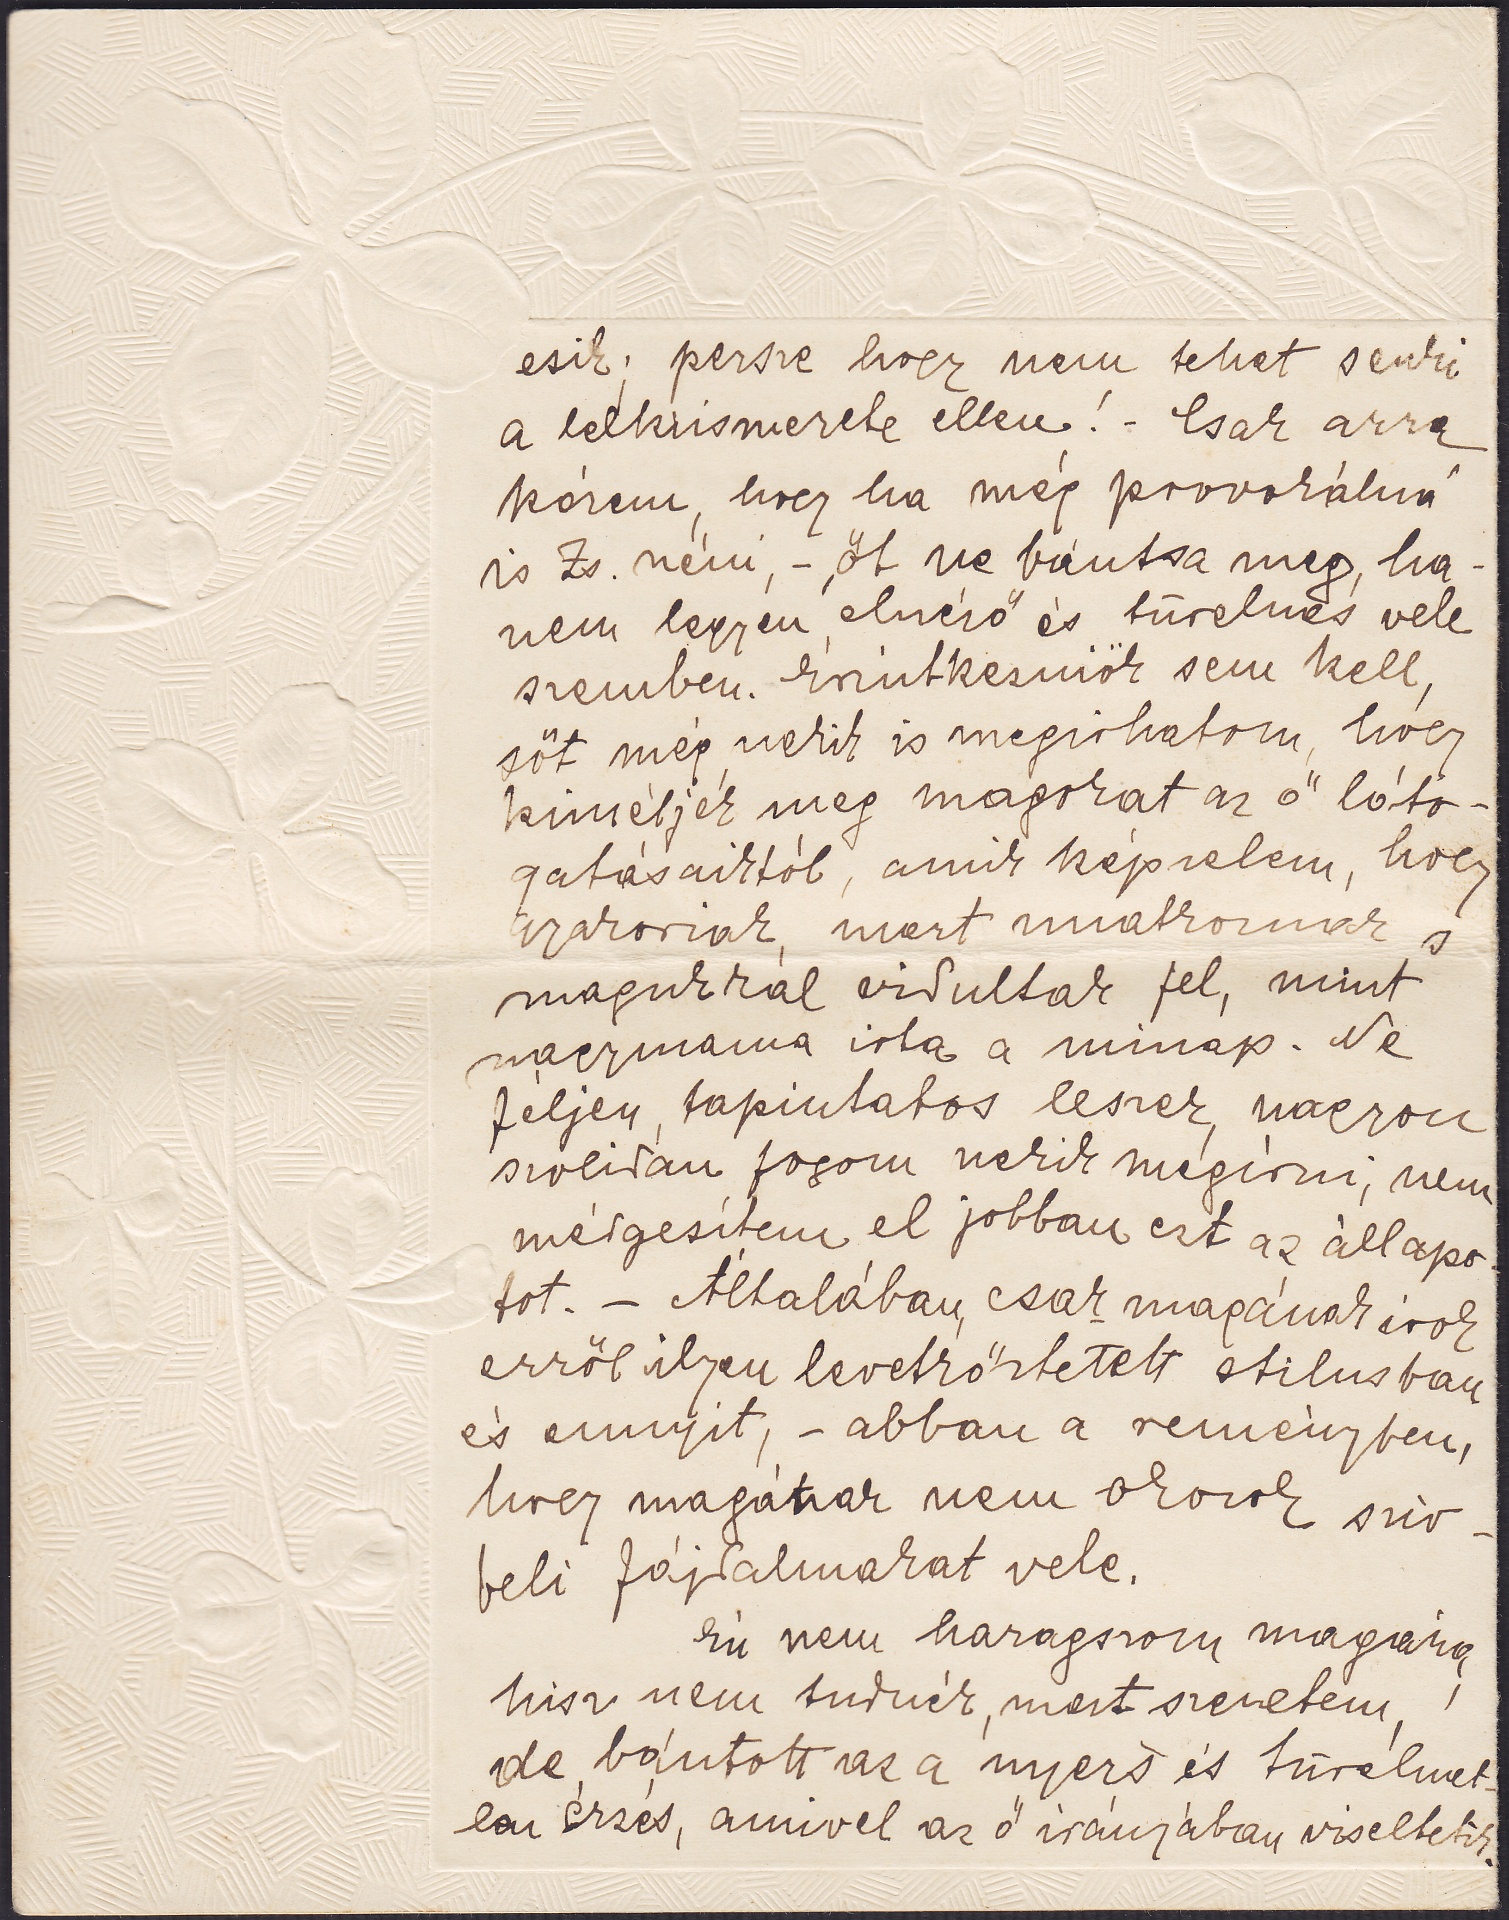 esik; persze hogy nem tehet senki
a lelkiismerete ellen! - Csak arra
kérem, hogy ha még provokálná
is Zs. néni, - őt ne bántsa meg, ha-
nem legyen elnéző és türelmes vele
szemben. Érintkezniök sem kell,
sőt még nekik is megírhatom, hogy
kiméljék meg magokat az ő láto-
gatásaiktól, amik képzelem, hogy
gyakoriak, mert unatkoznak s
magukkal vidultak fel, mint
nagymama irta a minap. Ne
féljen, tapintatos leszek, nagyon
szolidan fogom nekik megírni, nem
mérgesítem el jobban ezt az állapo-
tot. - Általában, csak magának irok
erről ilyen levetkőztetett stilusban
és ennyit, - abban a reményben,
hogy magának nem okozok sziv-
beli fájdalmakat vele.
Én nem haragszom magára,
hisz nem tudnék, mert szeretem,
de bántott az a nyers és türelmet-
len érzés, amivel az ő irányában viseltetik.